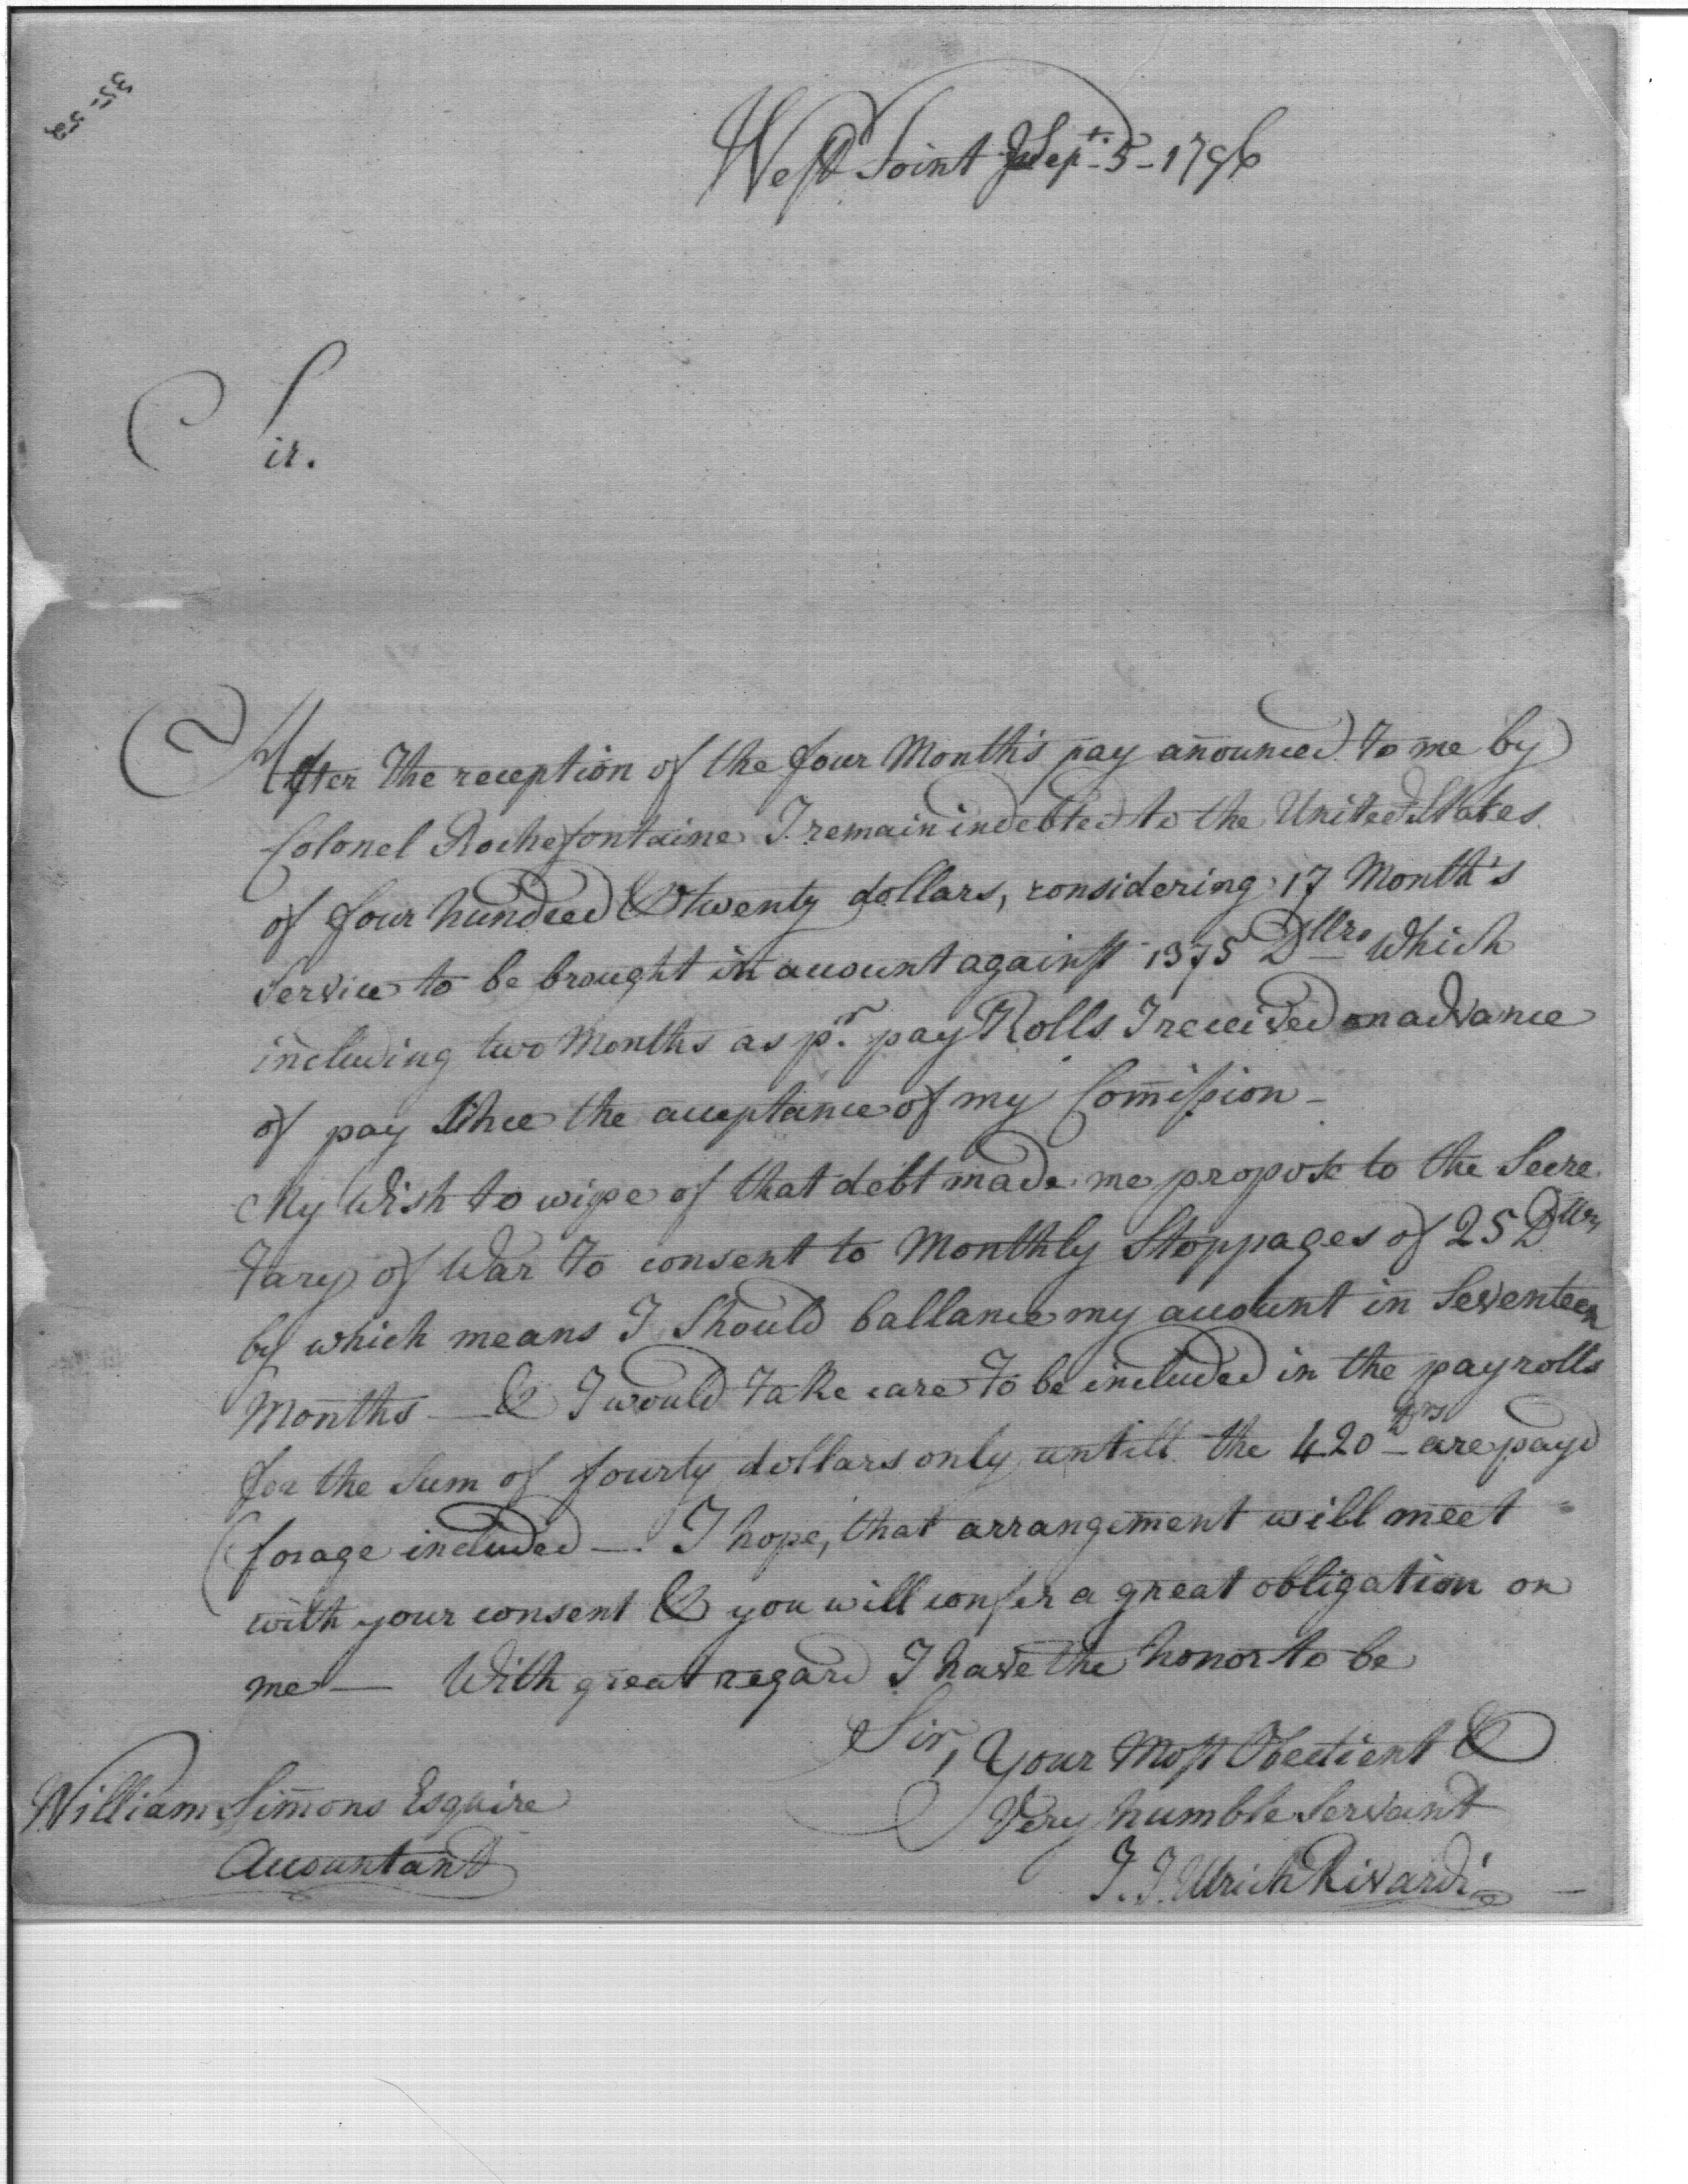 West Point Sept. 5 - 1796
Sir.
After the reception of the four Month's pay añounced to me by
Colonel Rochefontaine I remain indebted to the United States
of four hundred & twenty dollars, considering 17 Month's
Service to be brought in account against 1375 Dllrs which
including two Months as pr. pay Rolls I received on advance
of pay Since the acceptance of my Com̃ission -
My Wish to wipe of that debt made me propose to the Secre
tary of War to consent to Monthly Stoppages of 25 Dllrs
by which means I Should ballance my account in Seventeen
Months — & I would take care to be included in the payrolls
for the Sum of fourty dollars only untill the 420 Drs are payd
(forage included —. I hope, that arrangement will meet
with your consent & you will confer a great obligation on
me — With great regard I have the honor to be
Sir, Your Most Obedient &
Very humble Servant
J. J. Ulrich Rivardi —
William Sim̃ons Esquire
Accountant